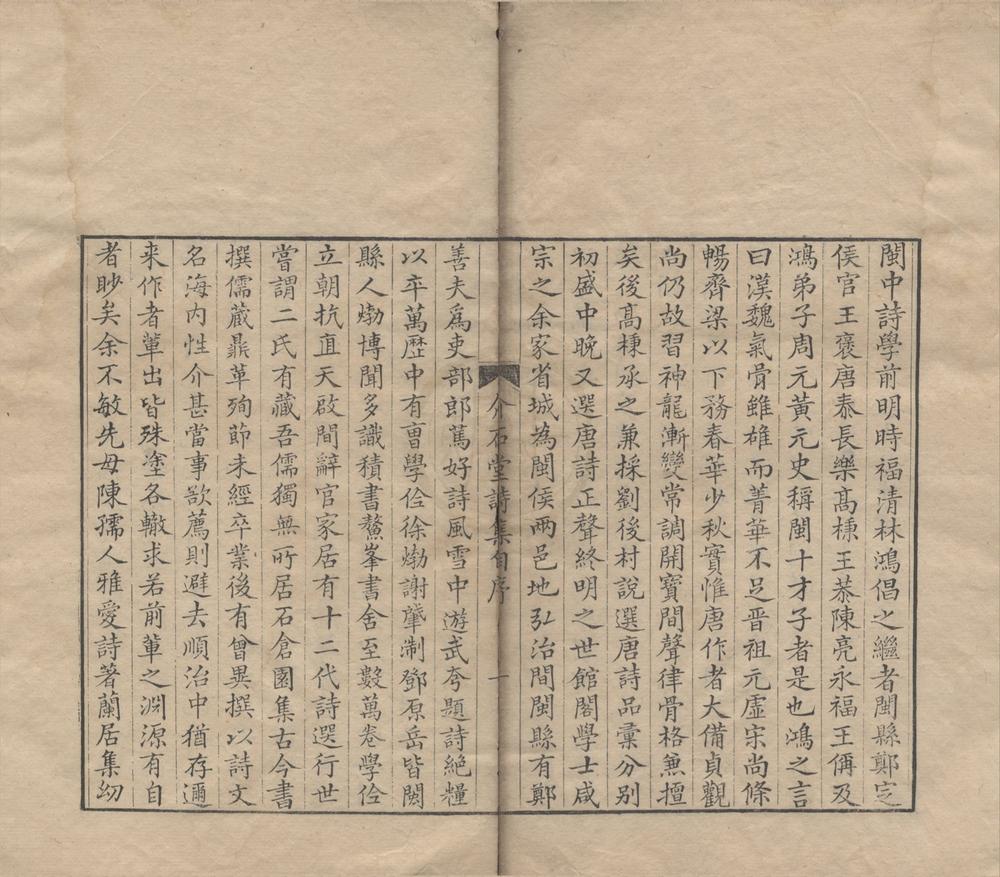 閩中詩學前明時福清林鴻倡之繼者閩縣鄭定
侯官王褒唐泰長樂髙棅王恭陳亮永福王偁及
鴻弟子周元黃元史稱閩十才子者是也鴻之言
曰漢魏氣骨雖雄而菁華不足晋祖元虛宋尚條
暢齊梁以下務春華少秋實惟唐作者大備貞觀
尚仍故習神龍漸變常調開寶間聲律骨格兼擅
矣後髙棅承之兼採劉後村說選唐詩品彙分別
初盛中晚又選唐詩正聲終明之世館閣學士咸
宗之余家省城為閩侯兩邑地弘治間閩縣有鄭
介石堂詩集自序
一
善夫為吏部郎篤好詩風雪中遊武夸題詩絶糧
以卒萬歷中有曺學佺徐𤊹謝肇淛鄧原岳皆閩
縣人𤊹博聞多識積書鰲峯書舍至數萬卷學佺
立朝抗直天啟間辭官家居有十二代詩選行世
嘗謂二氏有藏吾儒獨無所居石倉園集古今書
撰儒藏鼎革殉節未經卒業後有曾異撰以詩文
名海内性介甚當事欲薦則避去順治中猶存邇
来作者軰出皆殊塗各轍求若前軰之淵源有自
者眇矣余不敏先母陳孺人雅愛詩著蘭居集幼